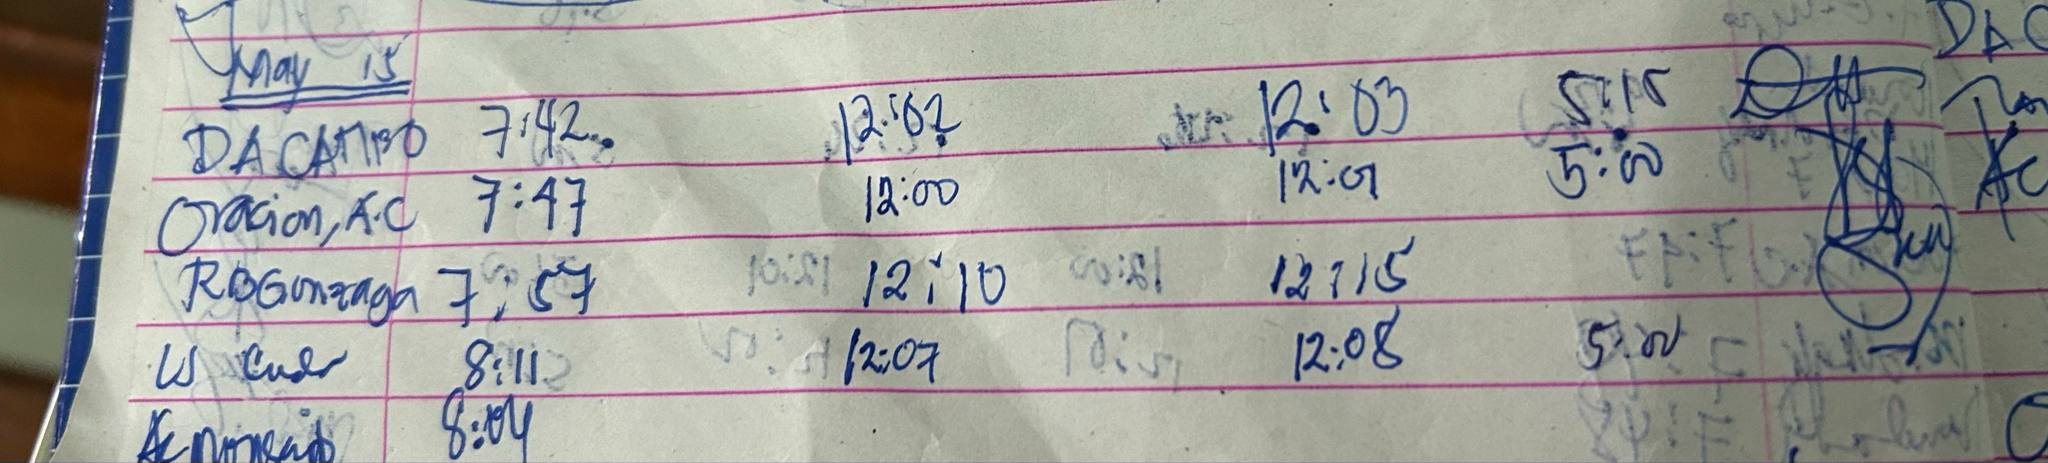 May 15
DACAMPO 7:42 12:02 12:03 5:15
Oracion, A.C 7:47 12:00 12:01 5:00
RBGonzaga 7:57 12:10 12:15
8:11 12:07 12:08 5:00
8:04
DAC
AC